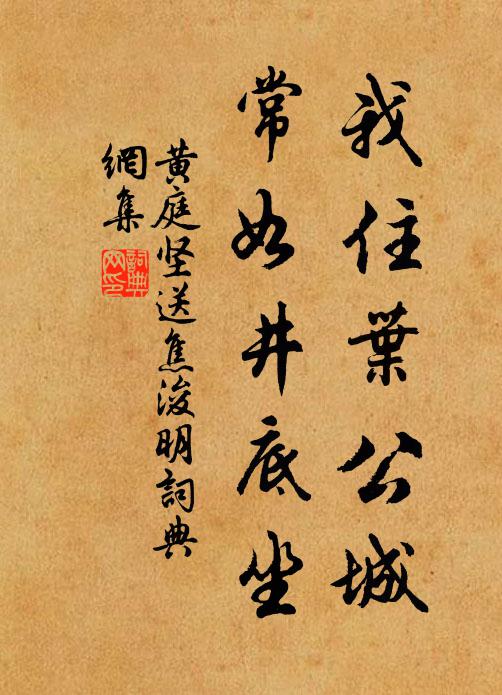 我住葉公城
常如井底坐
黄庭坚送焦浚明詞典
網集
詞典
网印